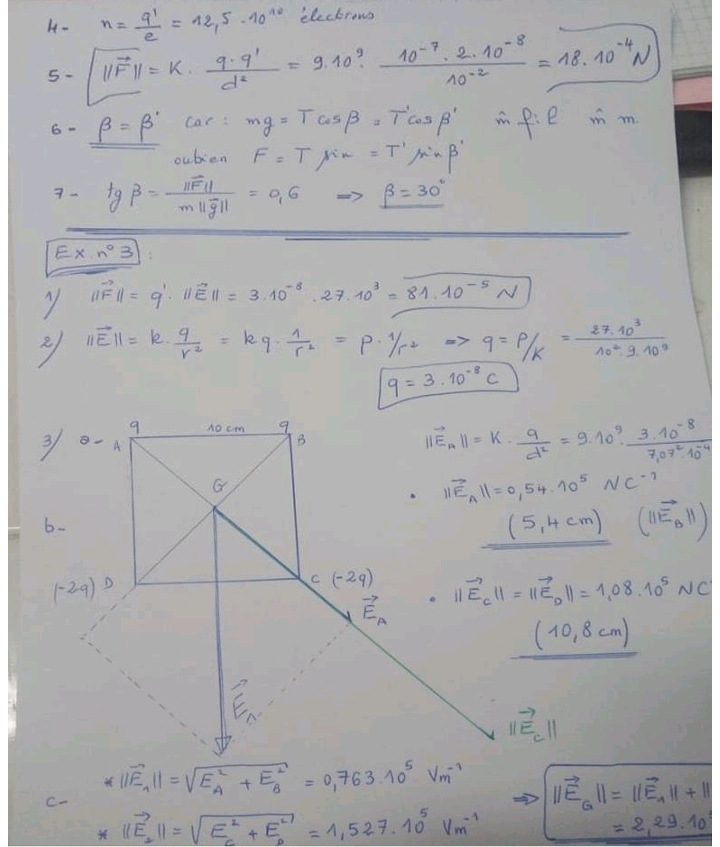 4- n = q'/e = 12,5 . 10^10 électrons
5- ||F⃗|| = K . q . q'/d² = 9.10^9 . 10^-7 . 2 . 10^-8 / 10^-2 = 18.10^-4 N
6- β = β' car : mg = T cos β = T' cos β' m̂ fil m̂ m.
oubien F = T sin = T' sin β'
7- tg β = ||F⃗|| / m ||g⃗|| = 0,6 => β = 30°
Ex. n° 3 :
1) ||F⃗|| = q' . ||E⃗|| = 3.10^-8 . 27.10^3 = 81.10^-5 N
2) ||E⃗|| = k . q/r² = kq . 1/r² = p . 1/r² => q = P/K = 27.10^3 / 10² . 9.10^9
q = 3.10^-8 C
3) a- A q 10 cm q B
||E⃗A|| = K . q/d² = 9.10^9 . 3.10^-8 / 7,07² . 10^-4
G
. ||E⃗A|| = 0,54.10^5 NC^-1
b- (5,4 cm) (||E⃗B||)
(-2q) D C (-2q)
E⃗A
. ||E⃗C|| = ||E⃗D|| = 1,08.10^5 NC
(10,8 cm)
E⃗1
||E⃗C||
c- * ||E⃗1|| = √(E²A + E²B) = 0,763.10^5 Vm^-1
* ||E⃗2|| = √(E²C + E²D) = 1,527.10^5 Vm^-1
=> ||E⃗G|| = ||E⃗1|| + ||
= 2,29.10^5